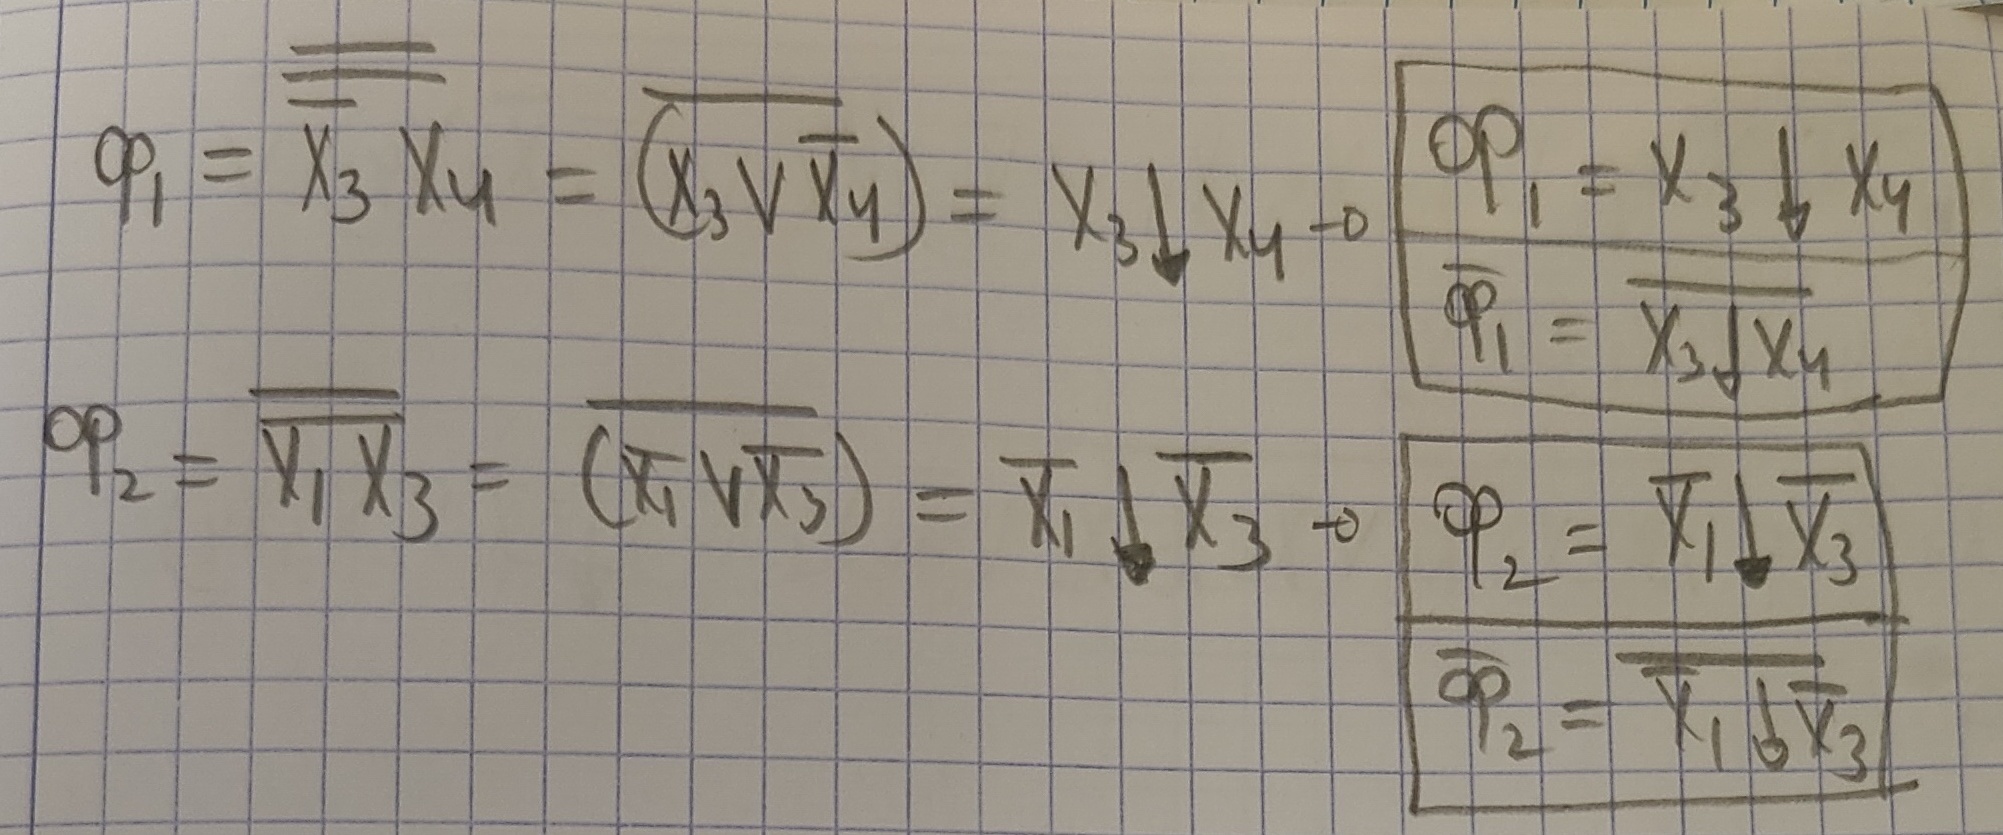 φ₁ = $\overline{\overline{\overline{X_3} X_4}}$ = $\overline{(X_3 ∨ \overline{X_4})}$ = X₃ ↓ X₄ → φ₁ = X₃ ↓ X₄
$\overline{φ_1}$ = $\overline{X_3 ↓ X_4}$
φ₂ = $\overline{\overline{X_1 X_3}}$ = $\overline{(\overline{X_1} ∨ \overline{X_3})}$ = $\overline{X_1}$ ↓ $\overline{X_3}$ → φ₂ = $\overline{X_1}$ ↓ $\overline{X_3}$
$\overline{φ_2}$ = $\overline{\overline{X_1} ↓ \overline{X_3}}$